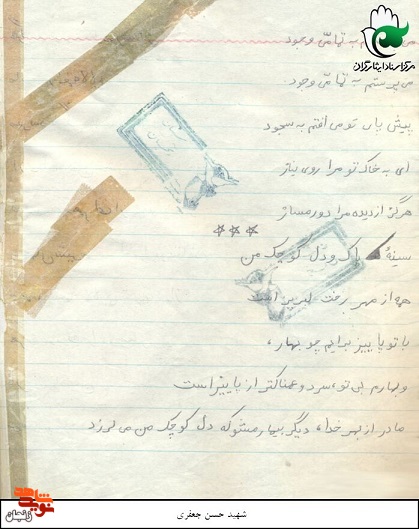 مرکز اسناد ایثارگران
به تمامی وجود
می پرستم به تمامی وجود
پیش پای تو می افتم به سجود
ای به خاک تو مرا روی نیاز
هرگز از دیده مرا دور مساز
☆☆☆
سینه پاک و دل کوچک من
همه از مهر رخت لبریز است
با تو پاییز برایم چو بهار،
و بهارم بی تو، سرد و غمناکتر از پاییز است
مادر از بهر خدا، دیگر بیمار مشو که دل کوچک من می لرزد
نوید شاهد
زنجان
شهید حسن جعفری